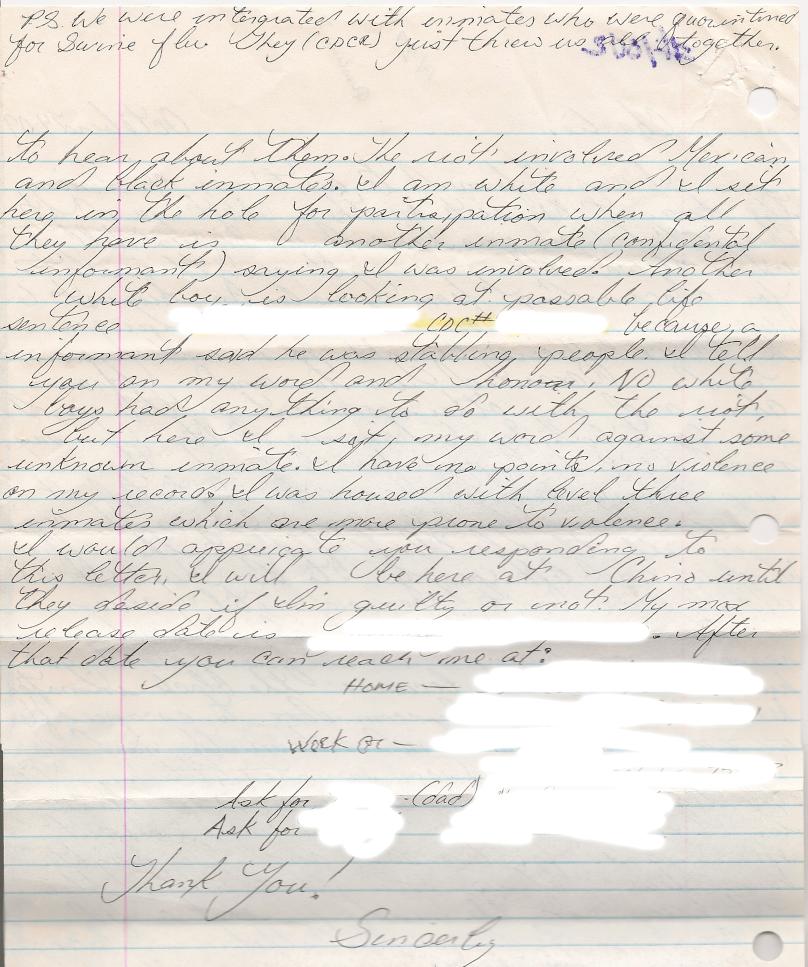 P.S. We were intergrated with inmates who were quorintined
for Swine flu. They (CDCR) just threw us all together.
to hear about them. The riot involved Mexican
and black inmates. I am white and I sit
here in the hole for participation when all
they have is another inmate (confidental
informant) saying I was involved. Another
white boy is looking at possable life
sentence CDC# because a
informant said he was stabbing people. I tell
you on my word and honour, NO white
boys had anything to do with the riot,
but here I sit, my word against some
unknown inmate. I have no points, no violence
on my record. I was housed with level three
inmates which are more prone to violence.
I would appricate you responding to
this letter. I will be here at Chino until
they deside if I'm guilty or not. My max
release date is . After
that date you can reach me at:
HOME —
WORK or —
Ask for - (dad)
Ask for
Thank You!
Sincerly